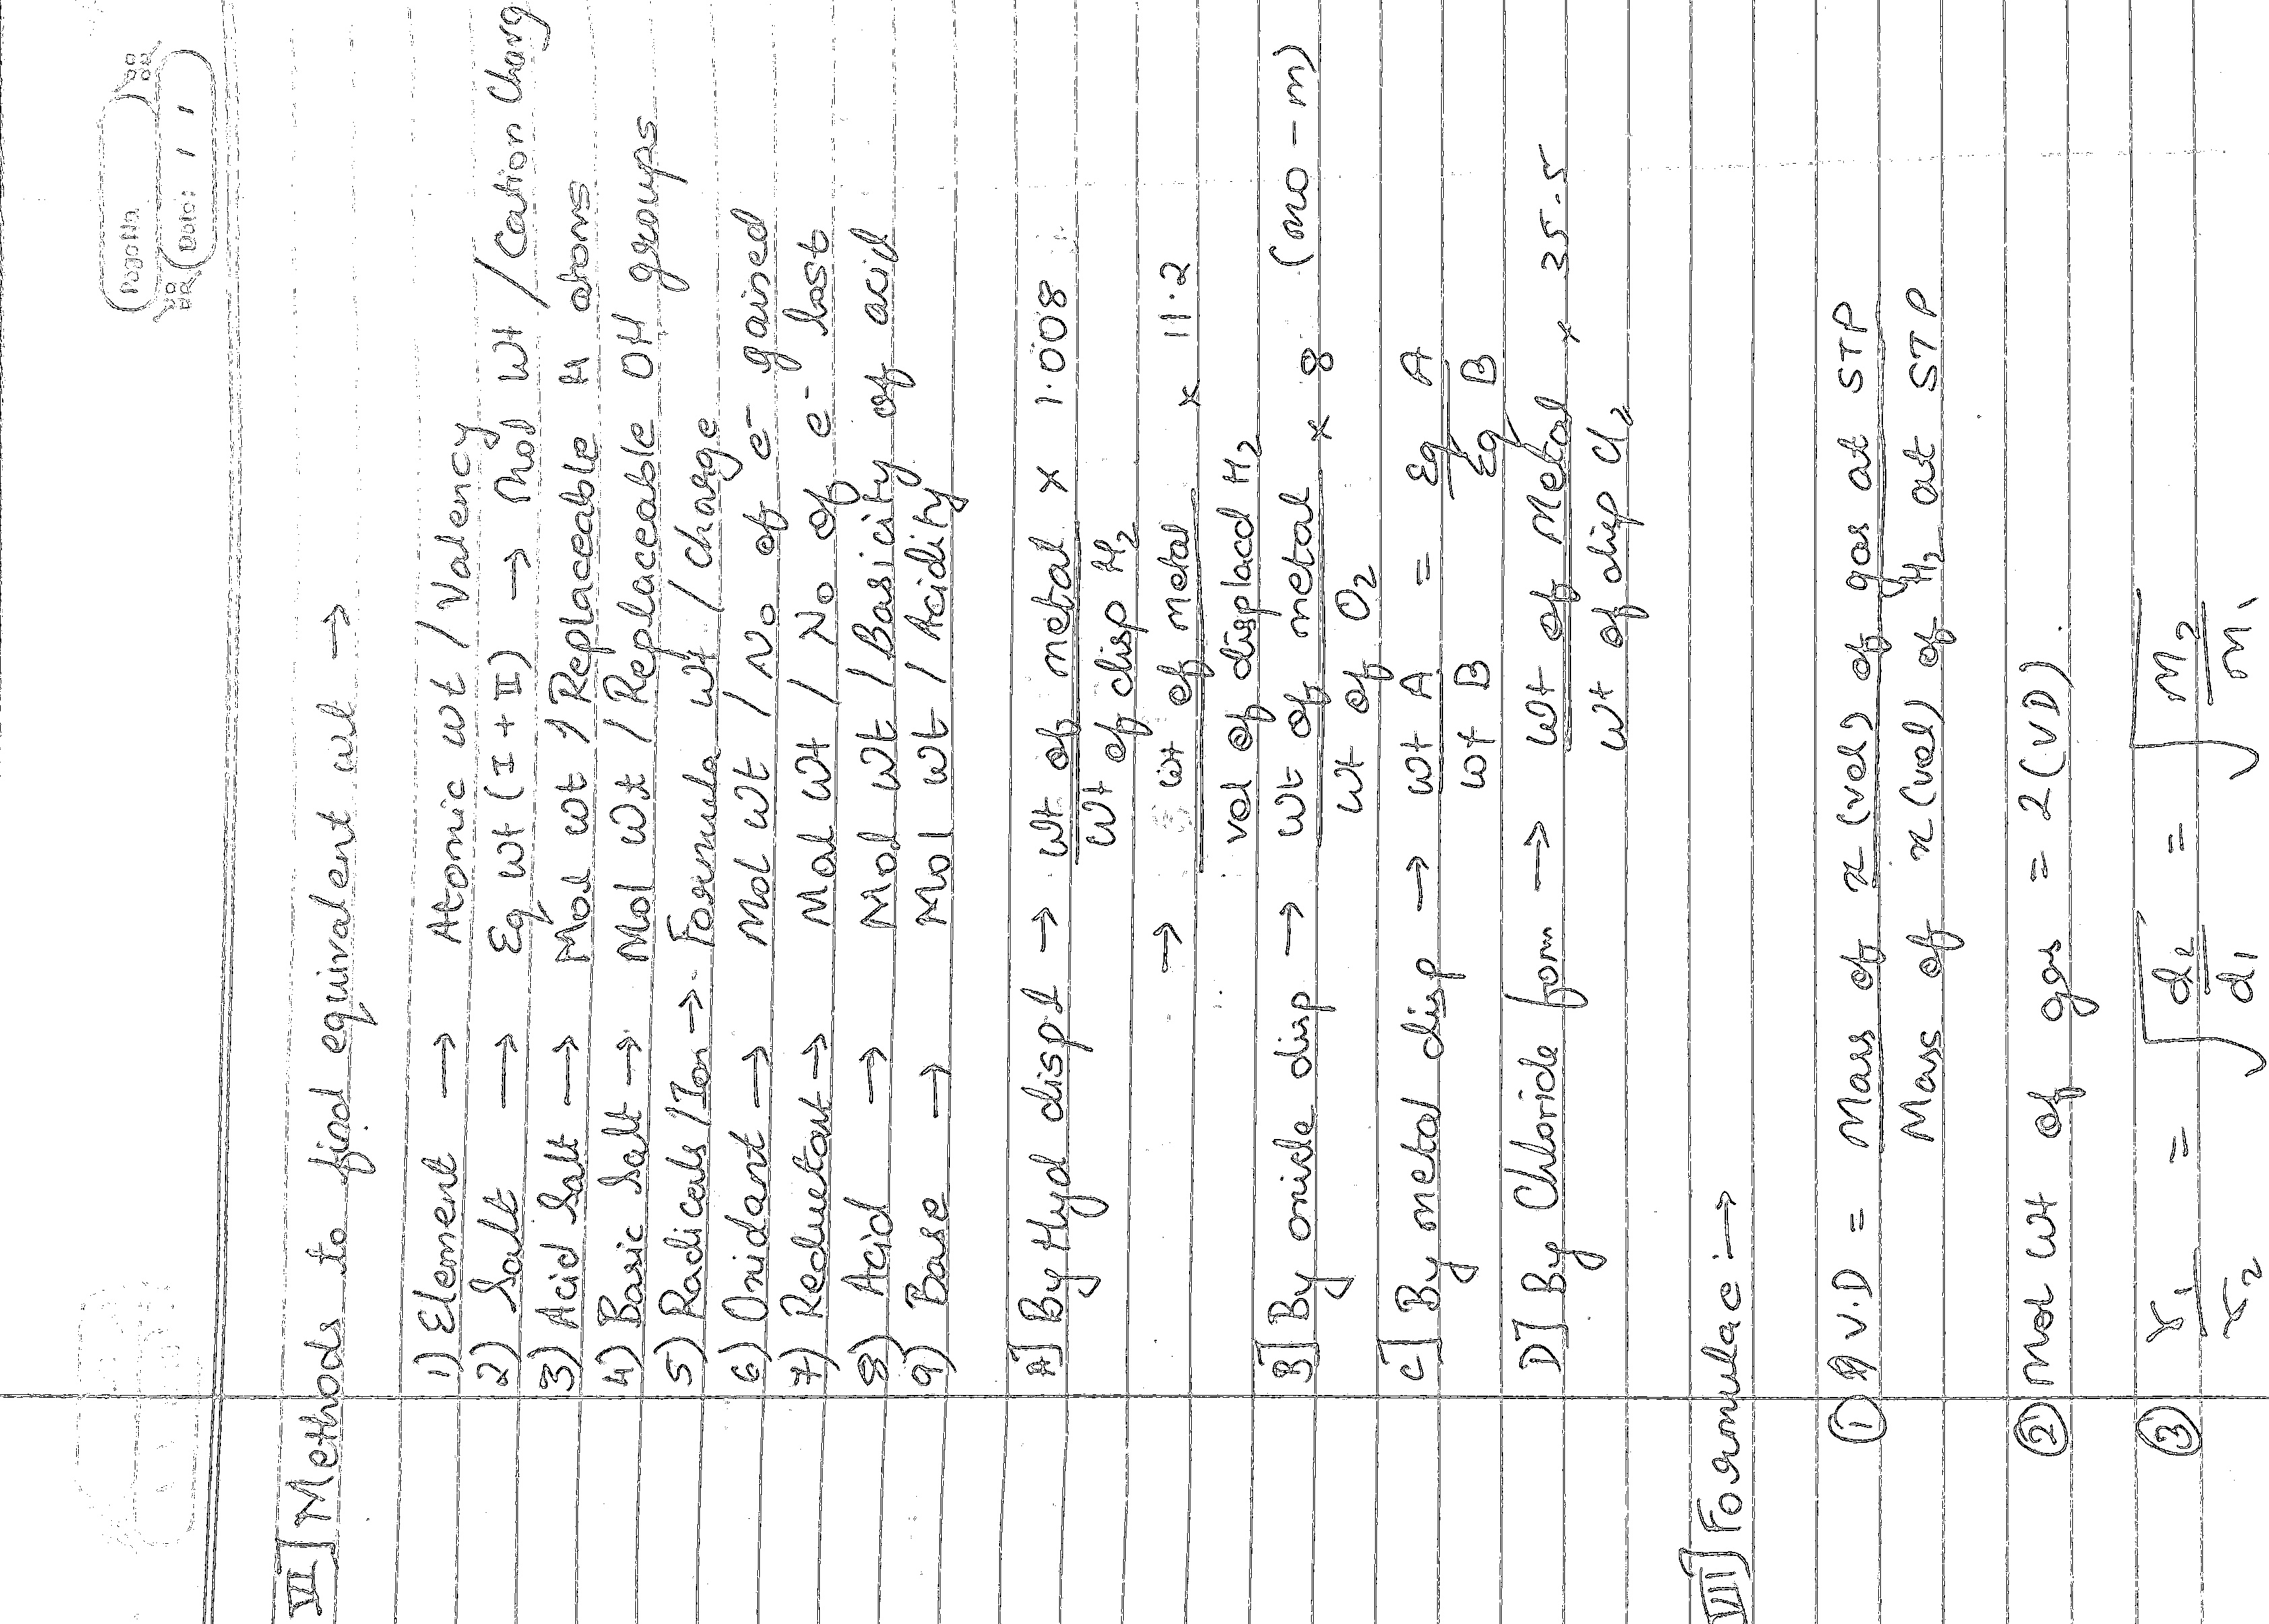 Page No.
Date: / /
VI] Methods to find equivalent wt →
1) Element → Atomic wt / Valency
2) Salt → Eq wt (I + II) → Mol wt / Cation Charg
3) Acid Salt → Mol wt / Replaceable H atoms
4) Basic Salt → Mol wt / Replaceable OH groups
5) Radicals / Ion → Formula wt / charge
6) Oxidant → Mol wt / No of e⁻ gained
7) Reductant → Mol wt / No of e⁻ lost
8) Acid → Mol wt / Basicity of acid
9) Base → Mol wt / Acidity
A] By Hyd displ → wt of metal × 1.008
wt of disp H₂
→ wt of metal × 11.2
vol of displacd H₂
B] By oxide disp → wt of metal × 8 (mo - m)
wt of O₂
C] By metal disp → wt A = Eq A
wt B Eq B
D] By Chloride form → wt of Metal × 35.5
wt of disp Cl₂
VII] Formulae :→
① V.D = Mass of x (vol) of gas at STP
Mass of x (vol) of H₂ at STP
② Mol wt of gas = 2 (VD)
③ r₁ = √ d₂ = √ M₂
r₂ d₁ M₁